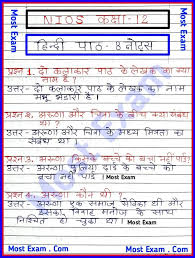 Most Exam
NIOS कक्षा-12
Most Exam
हिन्दी पाठ-8 नोटस
प्रश्न 1. दो कलाकार पाठ के लेखक का क्या
नाम है?
उत्तर- दो कलाकार पाठ के लेखक का नाम
मन्नू भंडारी है।
प्रश्न 2. अरुणा और चित्रा के मध्य क्या संबंध
था?
उत्तर- अरुणा और चित्रा के मध्य मित्रता का
संबंध था।
प्रश्न 3. अरुणा किसके बच्चे को बचा नहीं पाई?
उत्तर- अरुणा फुलिया दाई के बच्चे को
बचा नहीं पाई।
प्रश्न 4. अरुणा कौन थी?
उत्तर- अरुणा एक समाज सेविका थी और
उसका विचार मनोज के साथ
हुआ था।
Most Exam . Com
Most Exam . Com
Most Exam